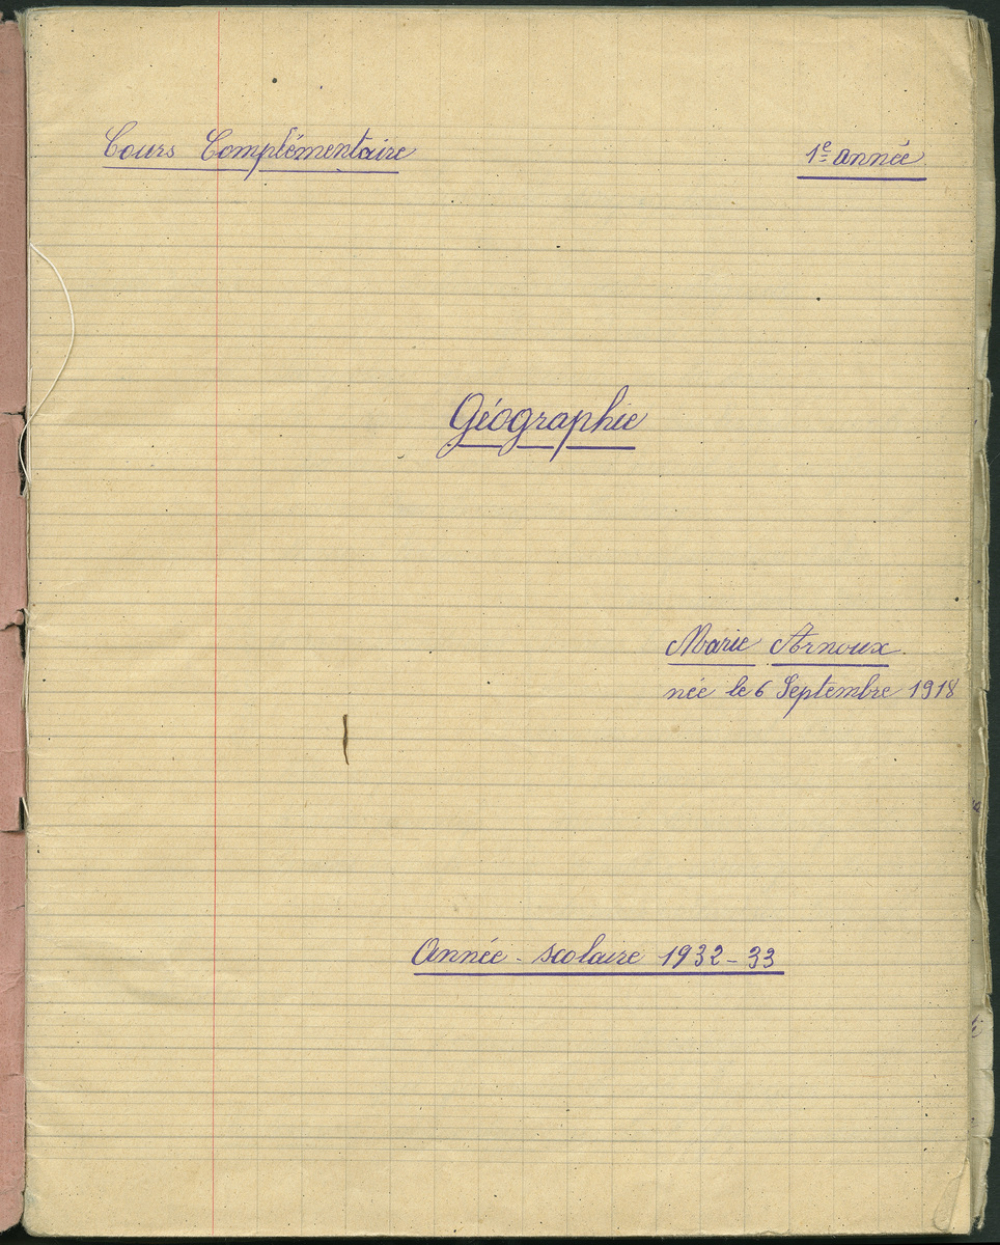 Cours Complémentaire 1e année
Géographie
Marie Arnoux.
née le 6 Septembre 1918
Année-scolaire 1932-33